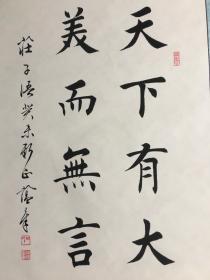 天下有大
美而無言
莊子語癸未新正